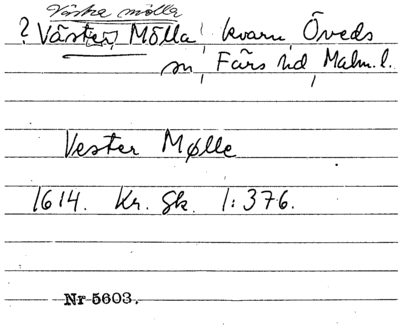 Västra mölla
? Väster Mölla, kvarn, Öveds
sn, Färs hd, Malm. l.
Vester Mølle
1614. Kr. Sk. 1:376.
Nr 5603.